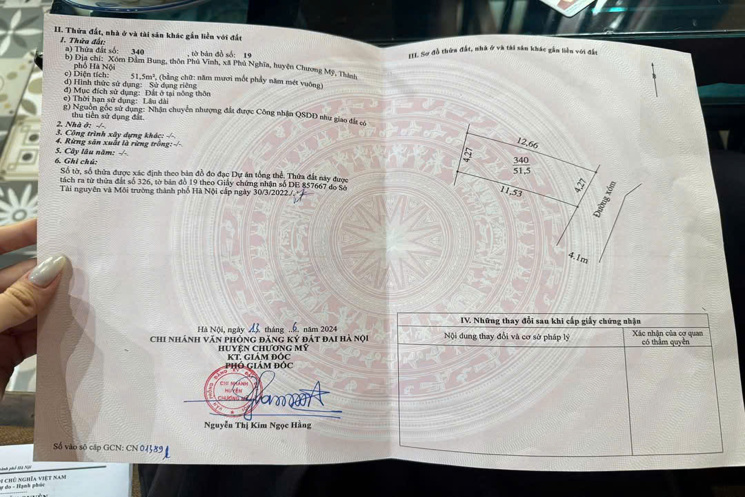 II. Thửa đất, nhà ở và tài sản khác gắn liền với đất
1. Thửa đất:
a) Thửa đất số: 340 , tờ bản đồ số: 19
b) Địa chỉ: Xóm Đầm Bung, thôn Phú Vinh, xã Phú Nghĩa, huyện Chương Mỹ, Thành
phố Hà Nội
c) Diện tích: 51,5m², (bằng chữ: năm mươi mốt phẩy năm mét vuông)
d) Hình thức sử dụng: Sử dụng riêng
đ) Mục đích sử dụng: Đất ở tại nông thôn
e) Thời hạn sử dụng: Lâu dài
g) Nguồn gốc sử dụng: Nhận chuyển nhượng đất được Công nhận QSDĐ như giao đất có
thu tiền sử dụng đất.
2. Nhà ở: -/-.
3. Công trình xây dựng khác: -/-.
4. Rừng sản xuất là rừng trồng: -/-.
5. Cây lâu năm: -/-.
6. Ghi chú:
Số tờ, số thửa được xác định theo bản đồ đo đạc Dự án tổng thể. Thửa đất này được
tách ra từ thửa đất số 326, tờ bản đồ 19 theo Giấy chứng nhận số DE 857667 do Sở
Tài nguyên và Môi trường thành phố Hà Nội cấp ngày 30/3/2022./.
Hà Nội, ngày 13 tháng 6 năm 2024
CHI NHÁNH VĂN PHÒNG ĐĂNG KÝ ĐẤT ĐAI HÀ NỘI
HUYỆN CHƯƠNG MỸ
KT. GIÁM ĐỐC
PHÓ GIÁM ĐỐC
CHI NHÁNH
HUYỆN
CHƯƠNG MỸ
Nguyễn Thị Kim Ngọc Hằng
Số vào sổ cấp GCN: CN
III. Sơ đồ thửa đất, nhà ở và tài sản khác gắn liền với đất
12,66
4,27
340
51,5
4,27
11,53
Đường xóm
4.1m
IV. Những thay đổi sau khi cấp giấy chứng nhận
Nội dung thay đổi và cơ sở pháp lý
Xác nhận của cơ quan
có thẩm quyền
CHỦ NGHĨA VIỆT NAM
do - Hạnh phúc